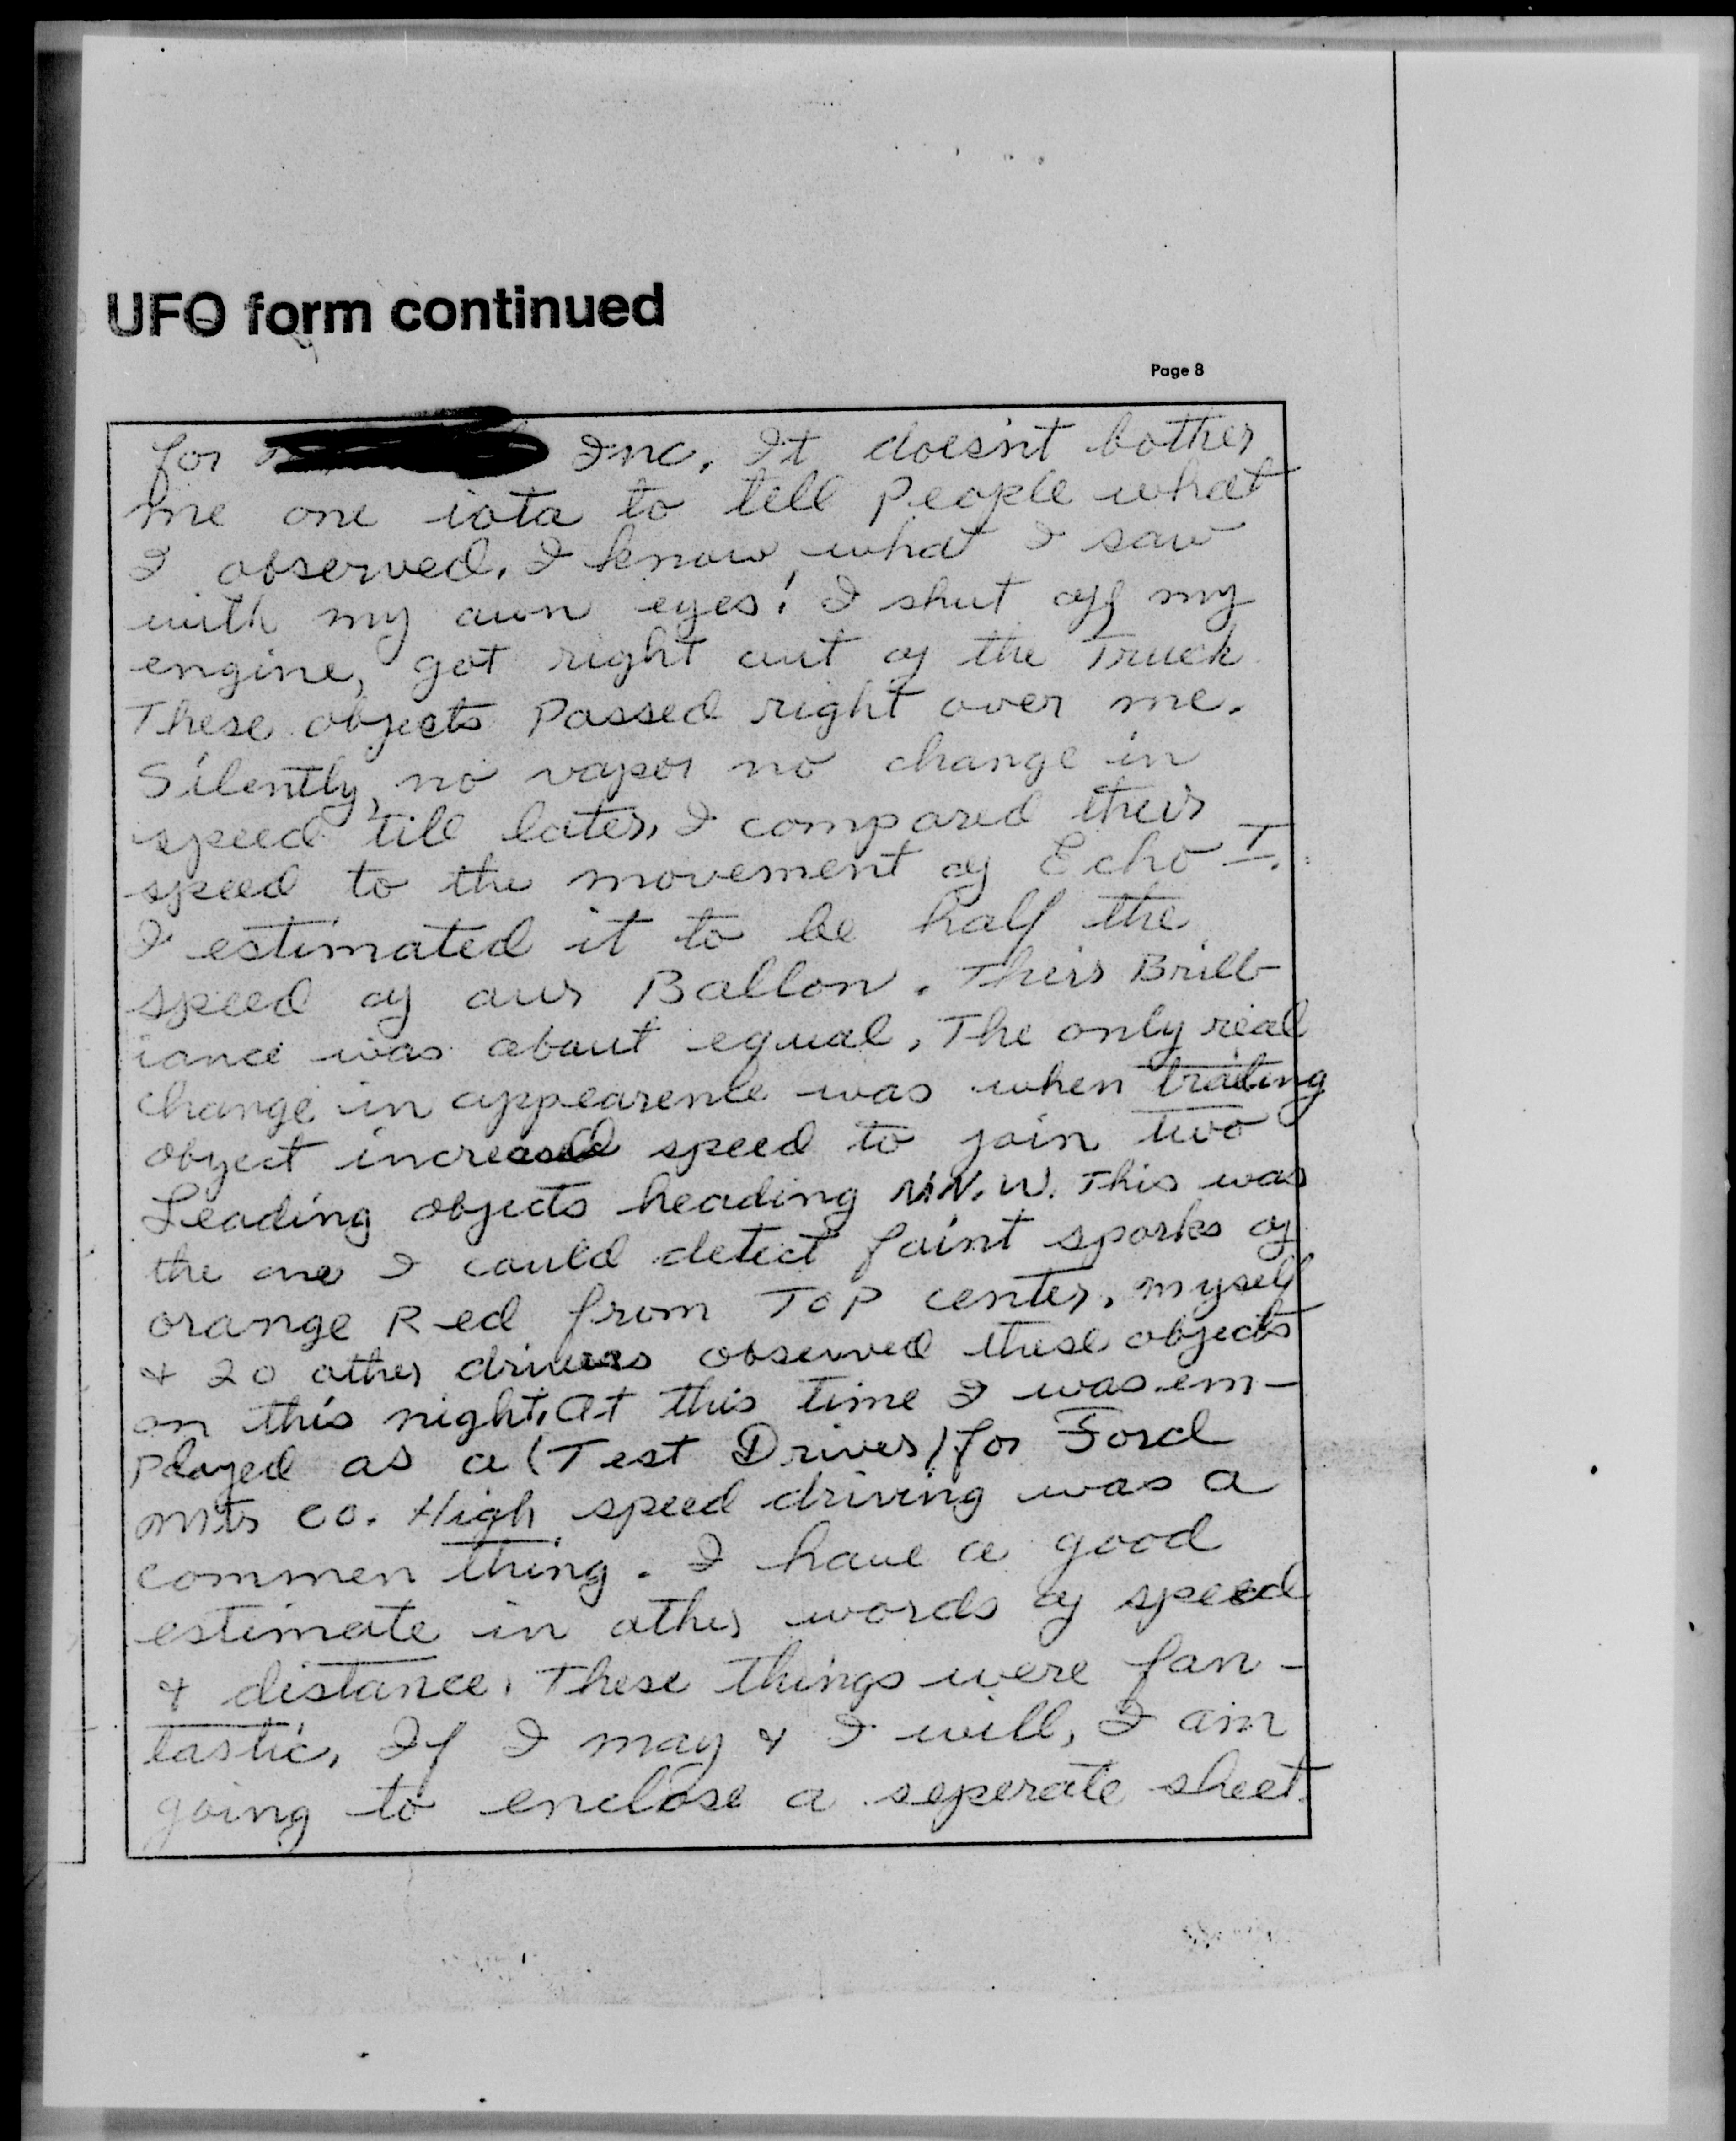 UFO form continued
Page 8
for Inc. It doesn't bother
me one iota to tell People what
I observed. I know what I saw
with my own eyes! I shut off my
engine, got right out of the Truck
These objects Passed right over me.
Silently, no vapor no change in
speed till later, I compared their
speed to the movement of Echo I.
I estimated it to be half the
speed of our Ballon. Their Brill-
iance was about equal, The only real
change in appearence was when trailing
object increased speed to join two
Leading objects heading N.N.W. This was
the one I could detect faint sparks of
orange Red from TOP center, myself
& 20 other drivers observed these objects
on this night. At this time I was em-
ployed as a (Test Driver) for Ford
Mtr Co. High speed driving was a
commen thing. I have a good
estimate in other words of speed
& distance. These things were fan-
tastic, If I may & I will, I am
going to enclose a seperate sheet.